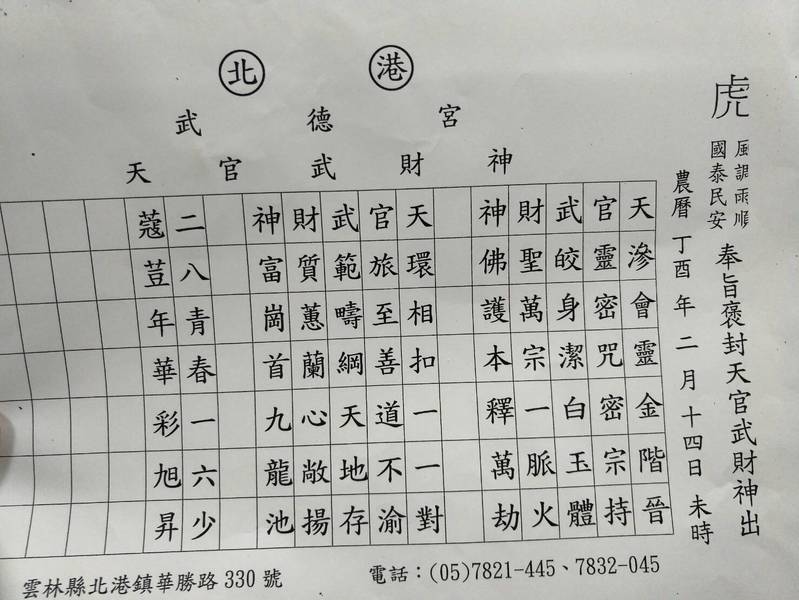 北港
武德宮
天官武財神
虎
風調雨順
國泰民安
奉旨褒封天官武財神出
農曆丁酉年二月十四日未時
天滲會靈金階晉
官靈密咒密宗持
武皎身潔白玉體
財聖萬宗一脈火
神佛護本釋萬劫
天環相扣一一對
官旅至善道不渝
武範疇綱天地存
財質蕙蘭心敞揚
神富崗首九龍池
二八青春一六少
蔻荳年華彩旭昇
雲林縣北港鎮華勝路 330 號
電話：(05)7821-445、7832-045